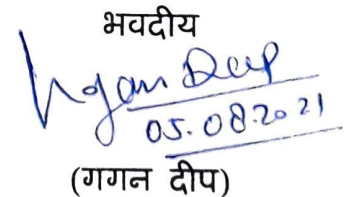 भवदीय
Gagan Deep
05.08.2021
(गगन दीप)